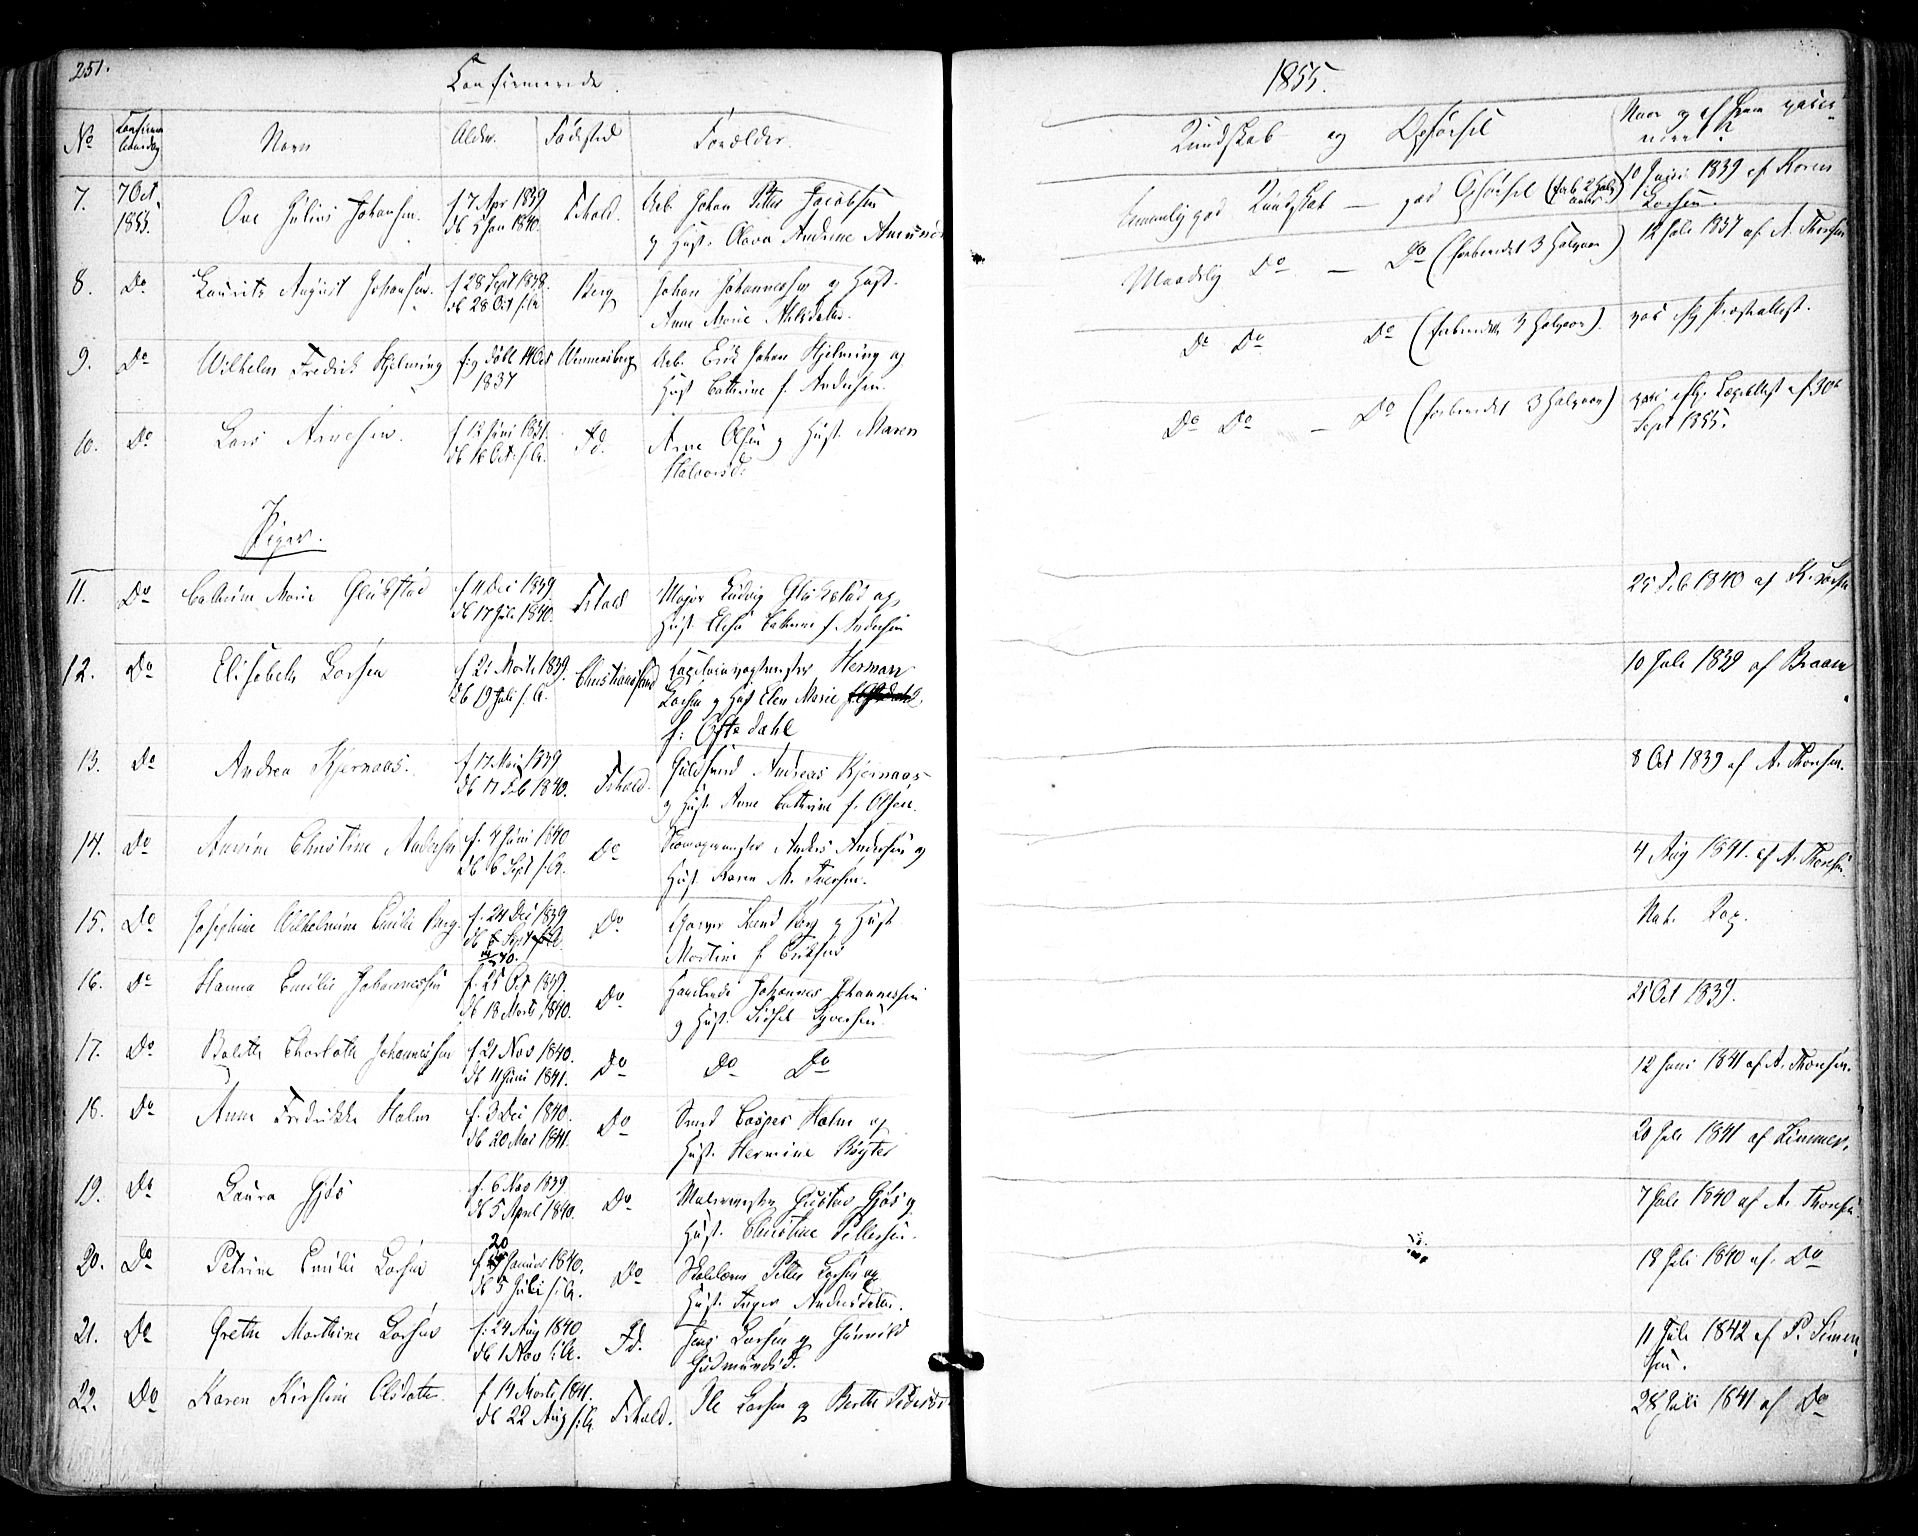 251.
Confirmerede.
1855.
No
Confirma-
tionsdag
Navn
Alder.
Fødested
Forælder.
Kundskab og Opførsel
Naar og af hvem vacci-
neret?
7.
7 Oct.
1855.
Ove Julius Johansen.
f 7 Apr 1839
db 5 Jan 1840.
Frhald.
Arb. Johan Petter Jacobsen
og Hust. Olava Andrine
temmelig god Kundskab — god Opførsel (forb. 2 halv
aar.)
10 1839 af Koren
Larsen.
8.
Do
Laurits August Johansen.
f 28 Sept 1838.
db 28 Oct s. A.
Berg
Johan Johannesen og Hust.
Anne Marie Nilsdatter.
Maadelig Do — Do (forberedet 3 Halvaar)
12 Juli 1837 af A. Thoresen
9.
Do
Wilhelm Fredrik Hjelming
f. og døbt 14 Oct
1837
Wennersberg
Arb. Erik Johan Hjelming og
Hust Cathrine f. Andersen.
Do Do Do (forberedt 3 Halvaar).
vac iflg Præsteattest.
10.
Do
Lars Arnesen.
f 13 Juni 1831.
db 16 Oct. s. A.
Id.
Arne Olsen og Hust. Maren
Halvorsd.
Do Do — Do (forberedet 3 Halvaar)
vac. iflg. Lægeattest af 30te
Sept 1855.
Piger.
11.
Do
Cathrine Marie Glückstad
f 4 Dec 1839
db 17 Juli 1840.
Frhald
Major Ludvig Glückstad og
Hust. Elisa Cathrine f. Andersen
25 Feb 1840 af K. Larsen
12.
Do
Elisabeth Larsen
f 21 Marts 1839.
db 19 Juli s. A.
Christianssand
Herman
Larsen og Hust Elen Marie
f: Oftedahl
10 Juli 1839 af Braam
13.
Do
Andrea Kjernaas.
f 17 Mai 1839
db 17 Feb 1840.
Frhald.
Guldsmed Andreas Kjernaas
og Hust. Anne Cathrine f. Olsen.
8 Oct 1839 af A. Thoresen.
14.
Do
Annine Christine Andersen
f. 4 Juni 1840
db 6 Sept s. A.
Do
Skomagermester Anders Andersen og
Hust. Karen M. Iversen.
4 Aug 1841. af A. Thoresen.
15.
Do
Josephine Wilhelmine Emilie Berg.
f. 24 Dec 1839
40.
Do
Berg og Hust
Martine f. Eriksen
Nat. Kop.
16.
Do
Hanna Emilie Johannessen
f. 25 Oct 1839.
db 18 Marts 1840.
Do
Handlende Johannes Johannessen
og Hust. Sissel Syversen.
25 Oct 1839.
17.
Do
Bolette Charlotte Johannessen
f 21 Nov 1840.
db 11 Juni 1841.
Do
Do Do
12 Juni 1841 af A. Thoresen.
18.
Do
Anne Fredrikke Holm
f. 3 Dec 1840.
db 20 Mai 1841.
Do
Smed Casper Holm og
Hust. Hermine Røyter
20 Juli 1841 af Simmes.
19.
Do
Laura Gjøs
f. 6 Nov 1839
db 5 April 1840.
Do
Malermester Gustav Gjøs og
Hust. Christine Pettersen.
7 Juli 1840 af A. Thoresen.
20.
Do
Petrine Emilie Larsen
20
f Januar 1840.
db 5 Juli s. A.
Do
Petter Larsen og
Hust. Inger Andersdatter.
18 Juli 1840 af. Do
21.
Do
Grethe Marthine Larsen
f: 24 Aug 1840
db 1 Nov s. A.
Id.
Jens Larsen og Gunnild
Gudmundsd.
11 Juli 1842 af P. Simen-
sen.
22.
Do
Karen Kirstine Olsdatter.
f 13 Marts 1841.
db 22 Aug s. A.
Frhald.
Ole Larsen og Berthe Pedersd.
28 Juli 1841 af Do